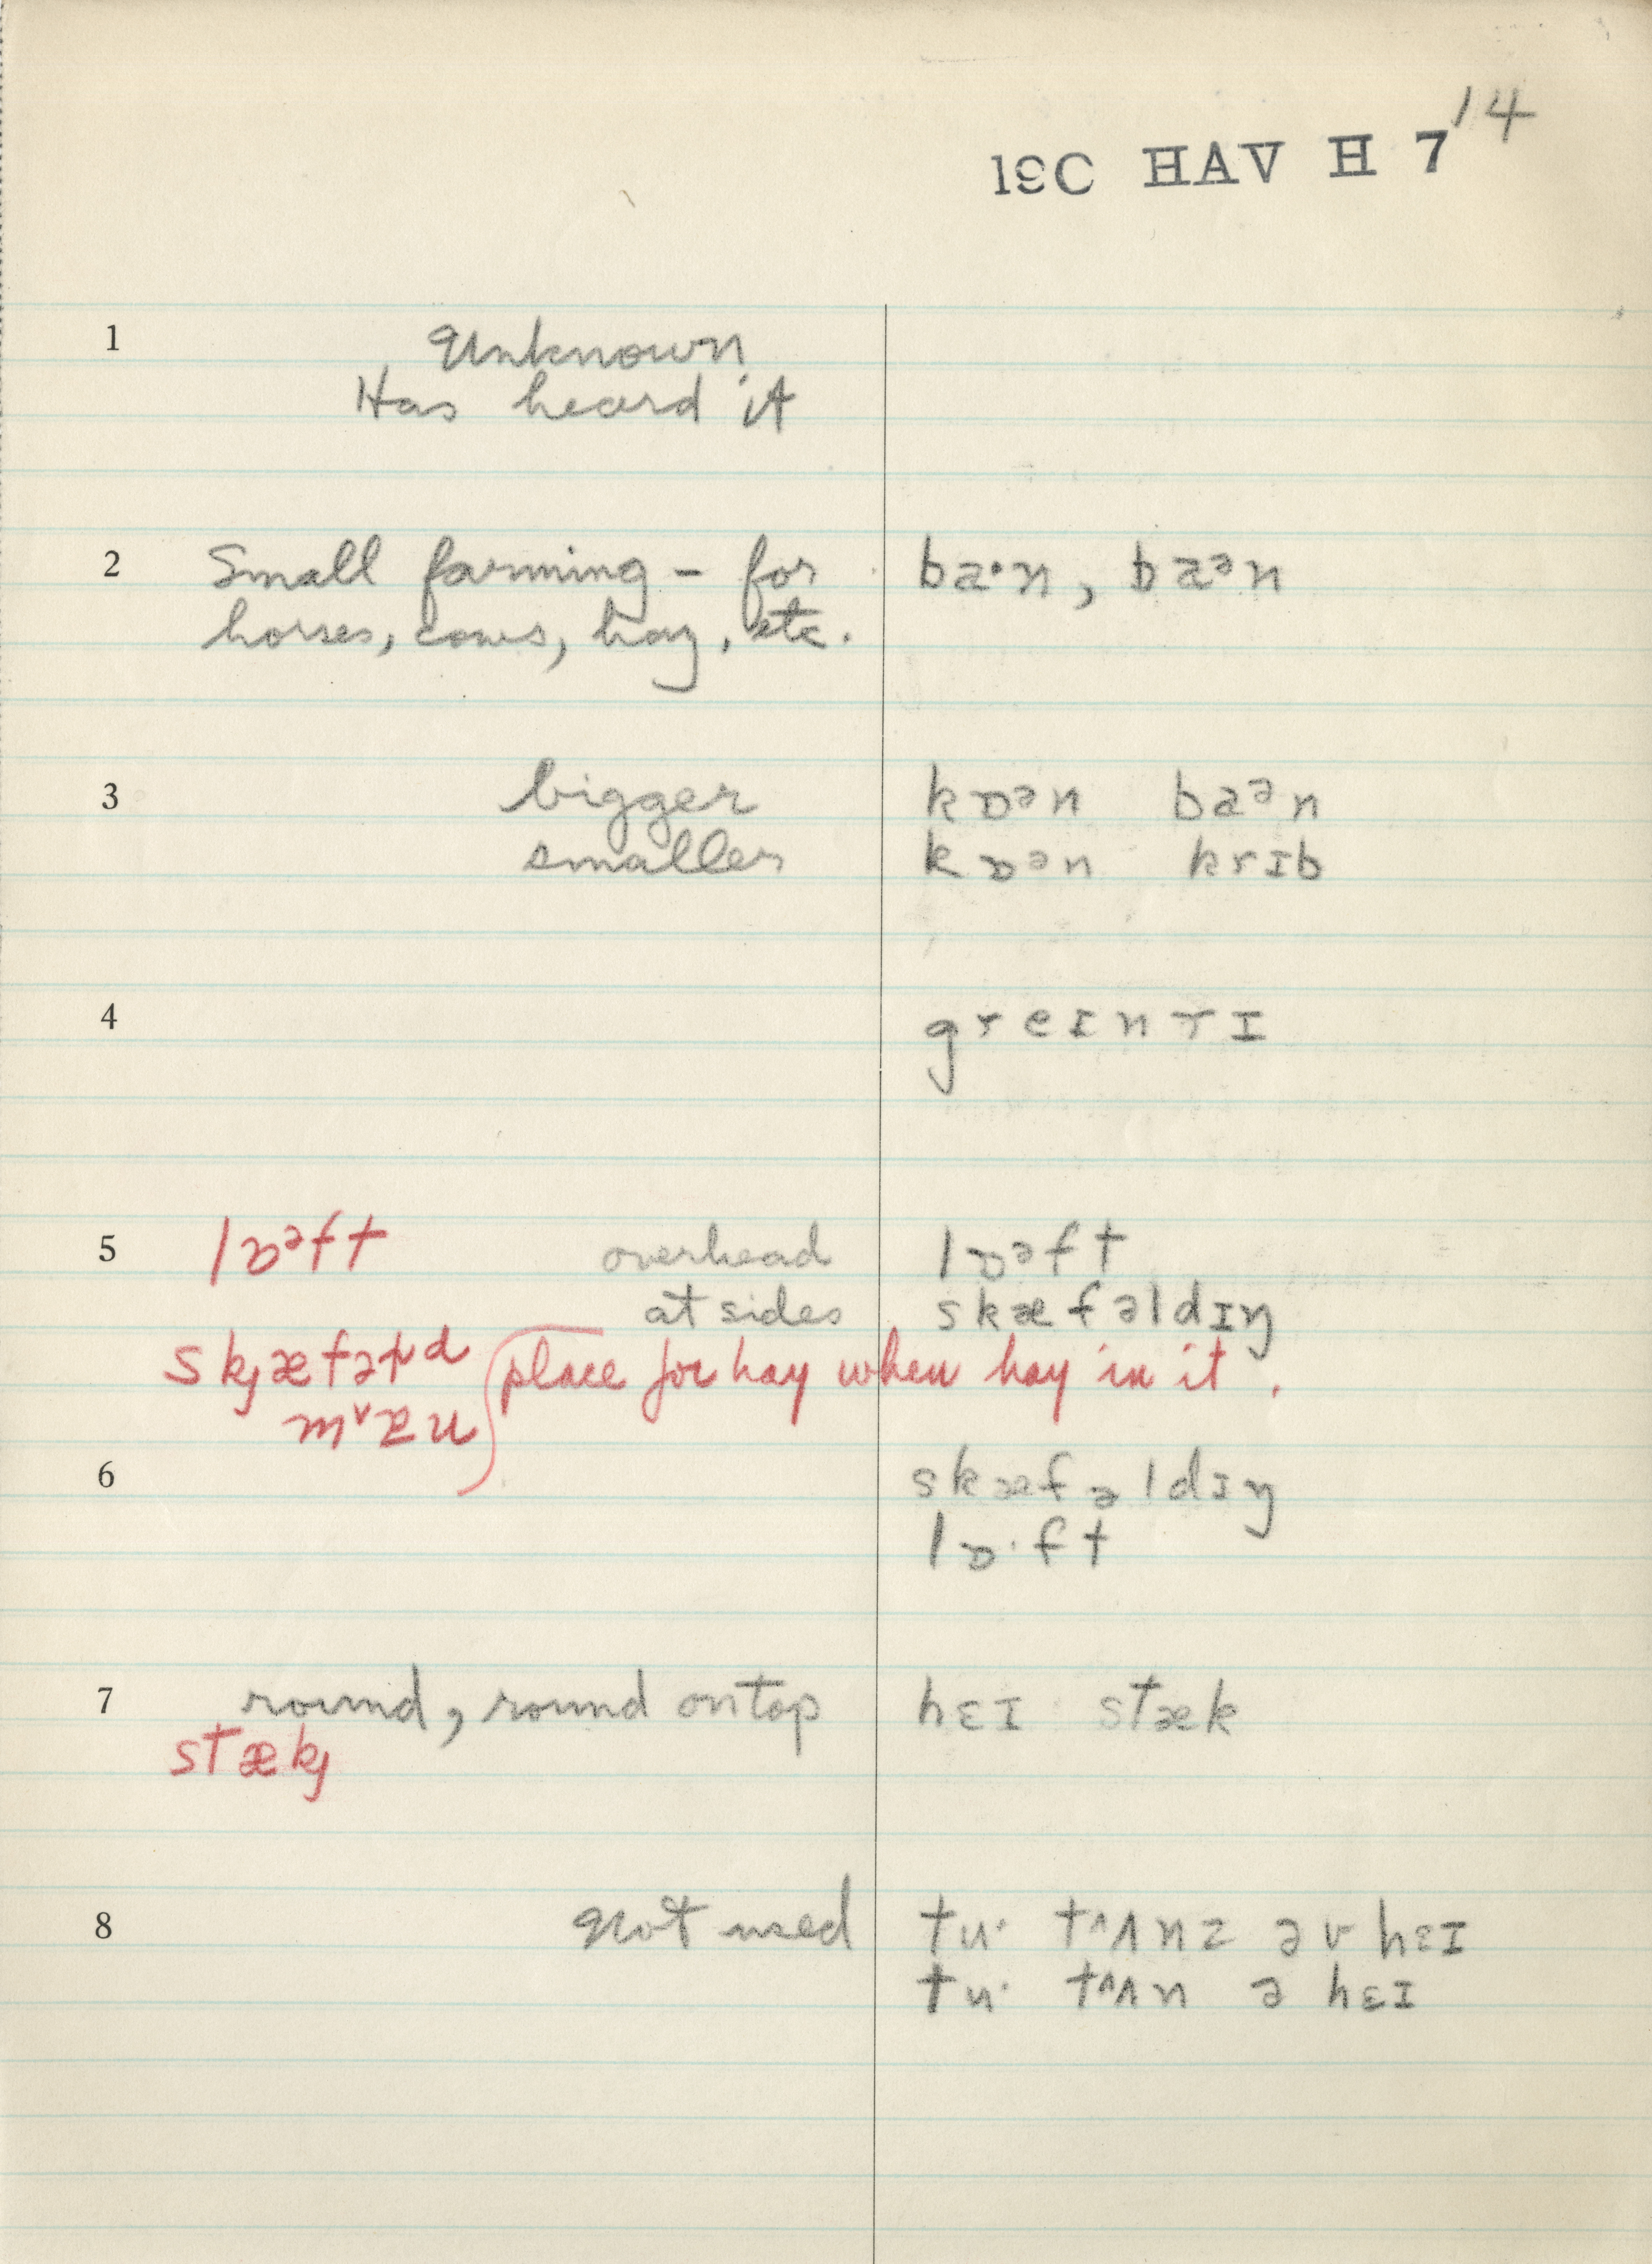 14
19C HAV H 7
1 Unknown
Has heard it
2 Small farming – for ba·n, baᵊn
horses, cows, hay, etc.
3 bigger kɒᵊn baᵊn
smaller kɒᵊn krɪb
4 greɪnrɪ
5 lɒᵊft overhead lɒᵊft
at sides skæfəldɪŋ
place for hay when hay in it.
6 skæfəldɪŋ
lɒ·ft
7 round, round on top hɛɪ stæk
stæk
8 Not used tu· tʌnz əv hɛɪ
tu· tʌn ə hɛɪ